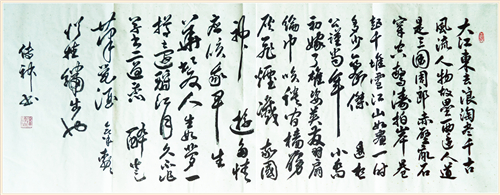 大江東去浪淘尽千古
風流人物故壘西邊人道
是三國周郎赤壁乱石
穿空驚濤拍岸卷
起千堆雪江山如畫一時
多少豪傑 遥想
公瑾當年 小喬
初嫁了雄姿英发羽扇
綸巾談笑間檣櫓
灰飛煙滅 故國
神遊 多情
應笑我早生
華髮人生如夢一
樽還酹江月